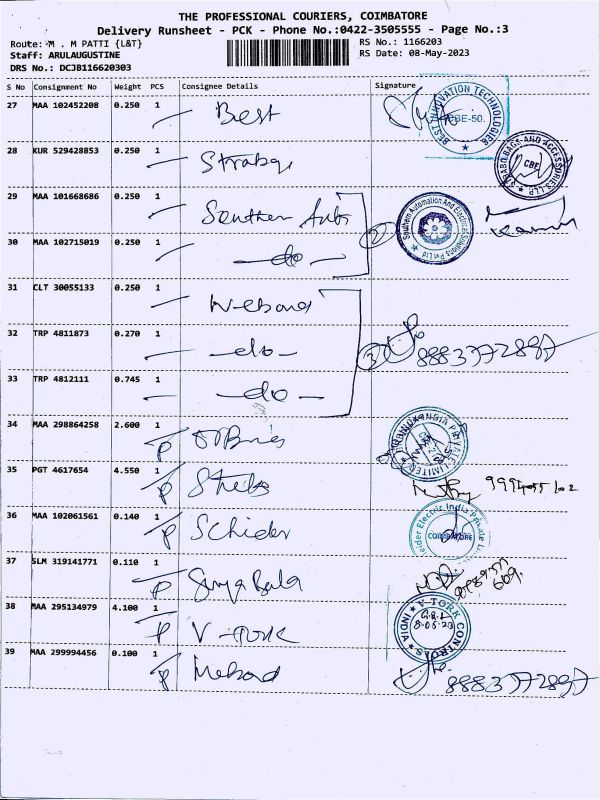 THE PROFESSIONAL COURIERS, COIMBATORE
Delivery Runsheet - PCK - Phone No.:0422-3505555 - Page No.:3
Route: M . M PATTI {L&T}
RS No.: 1166203
Staff: ARULAUGUSTINE
RS Date: 08-May-2023
DRS No.: DCJB116620303
S No Consignment No Weight PCS Consignee Details Signature
27 MAA 102452208 0.250 1 Best
BEST INNOVATION TECHNOLOGIES CBE-50.
28 KUR 529428853 0.250 1
BAGS AND ACCESSORIES LLP CBE
29 MAA 101668686 0.250 1 Southern Auto
Southern Automation And Electrical Solutions Pvt Ltd
30 MAA 102715019 0.250 1 -do-
31 CLT 30055133 0.250 1
32 TRP 4811873 0.270 1 -do-
3 8883772897
33 TRP 4812111 0.745 1 -do-
34 MAA 298864258 2.600 1 P
INDIA PRIVATE LIMITED
35 PGT 4617654 4.550 1 P
36 MAA 102061561 0.140 1 P Schider
Electric India Private COIMBATORE
37 SLM 319141771 0.110 1 P Surya Bala
38 MAA 295134979 4.100 1 P V-TORK
V-TORK CONTROLS INDIA 8.05.23
39 MAA 299994456 0.100 1 P
8883772897